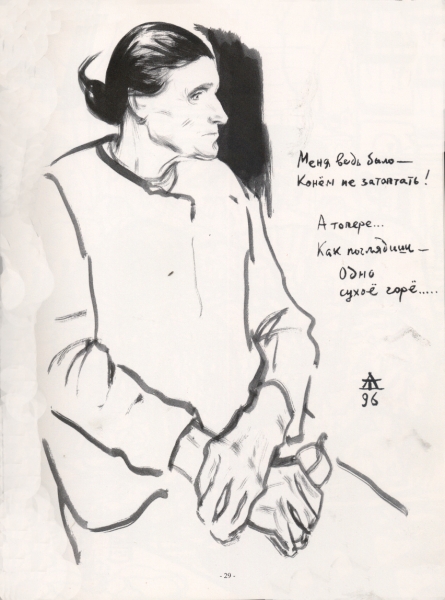 Меня ведь было —
Конём не затоптать!
А топере...
Как поглядишь —
Одно
сухоё горё.....
96
- 29 -